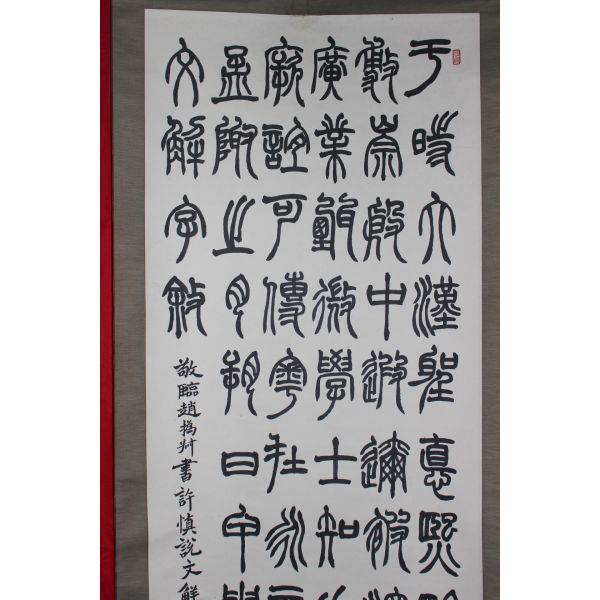 于時大漢聖悳熙
敷崇殷中遐邇被
廣業甄微學士知
厥誼可傳粵在永元
孟陬之月朔日甲
文解字敘
敬臨趙撝叔書許慎說文觧